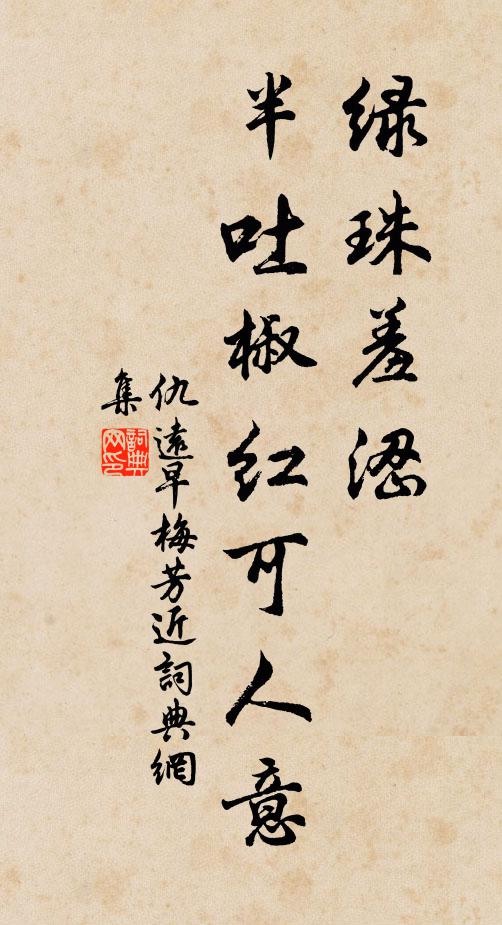 绿珠羞涩
半吐椒红可人意
仇遠早梅芳近詞典網
集
詞典
网印